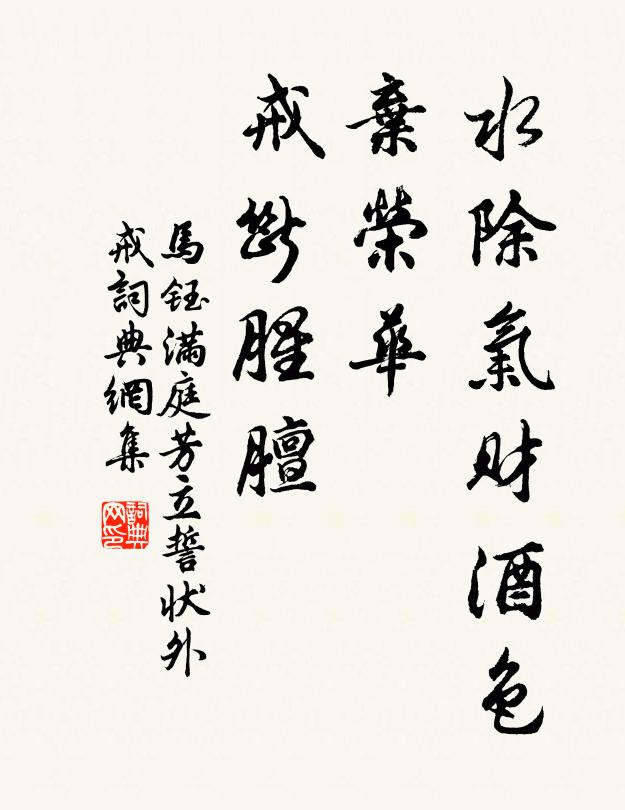 水除氣财酒色
棄榮華
戒斷腥膻
馬鈺滿庭芳立誓状外
戒詞典網集
詞典
网印